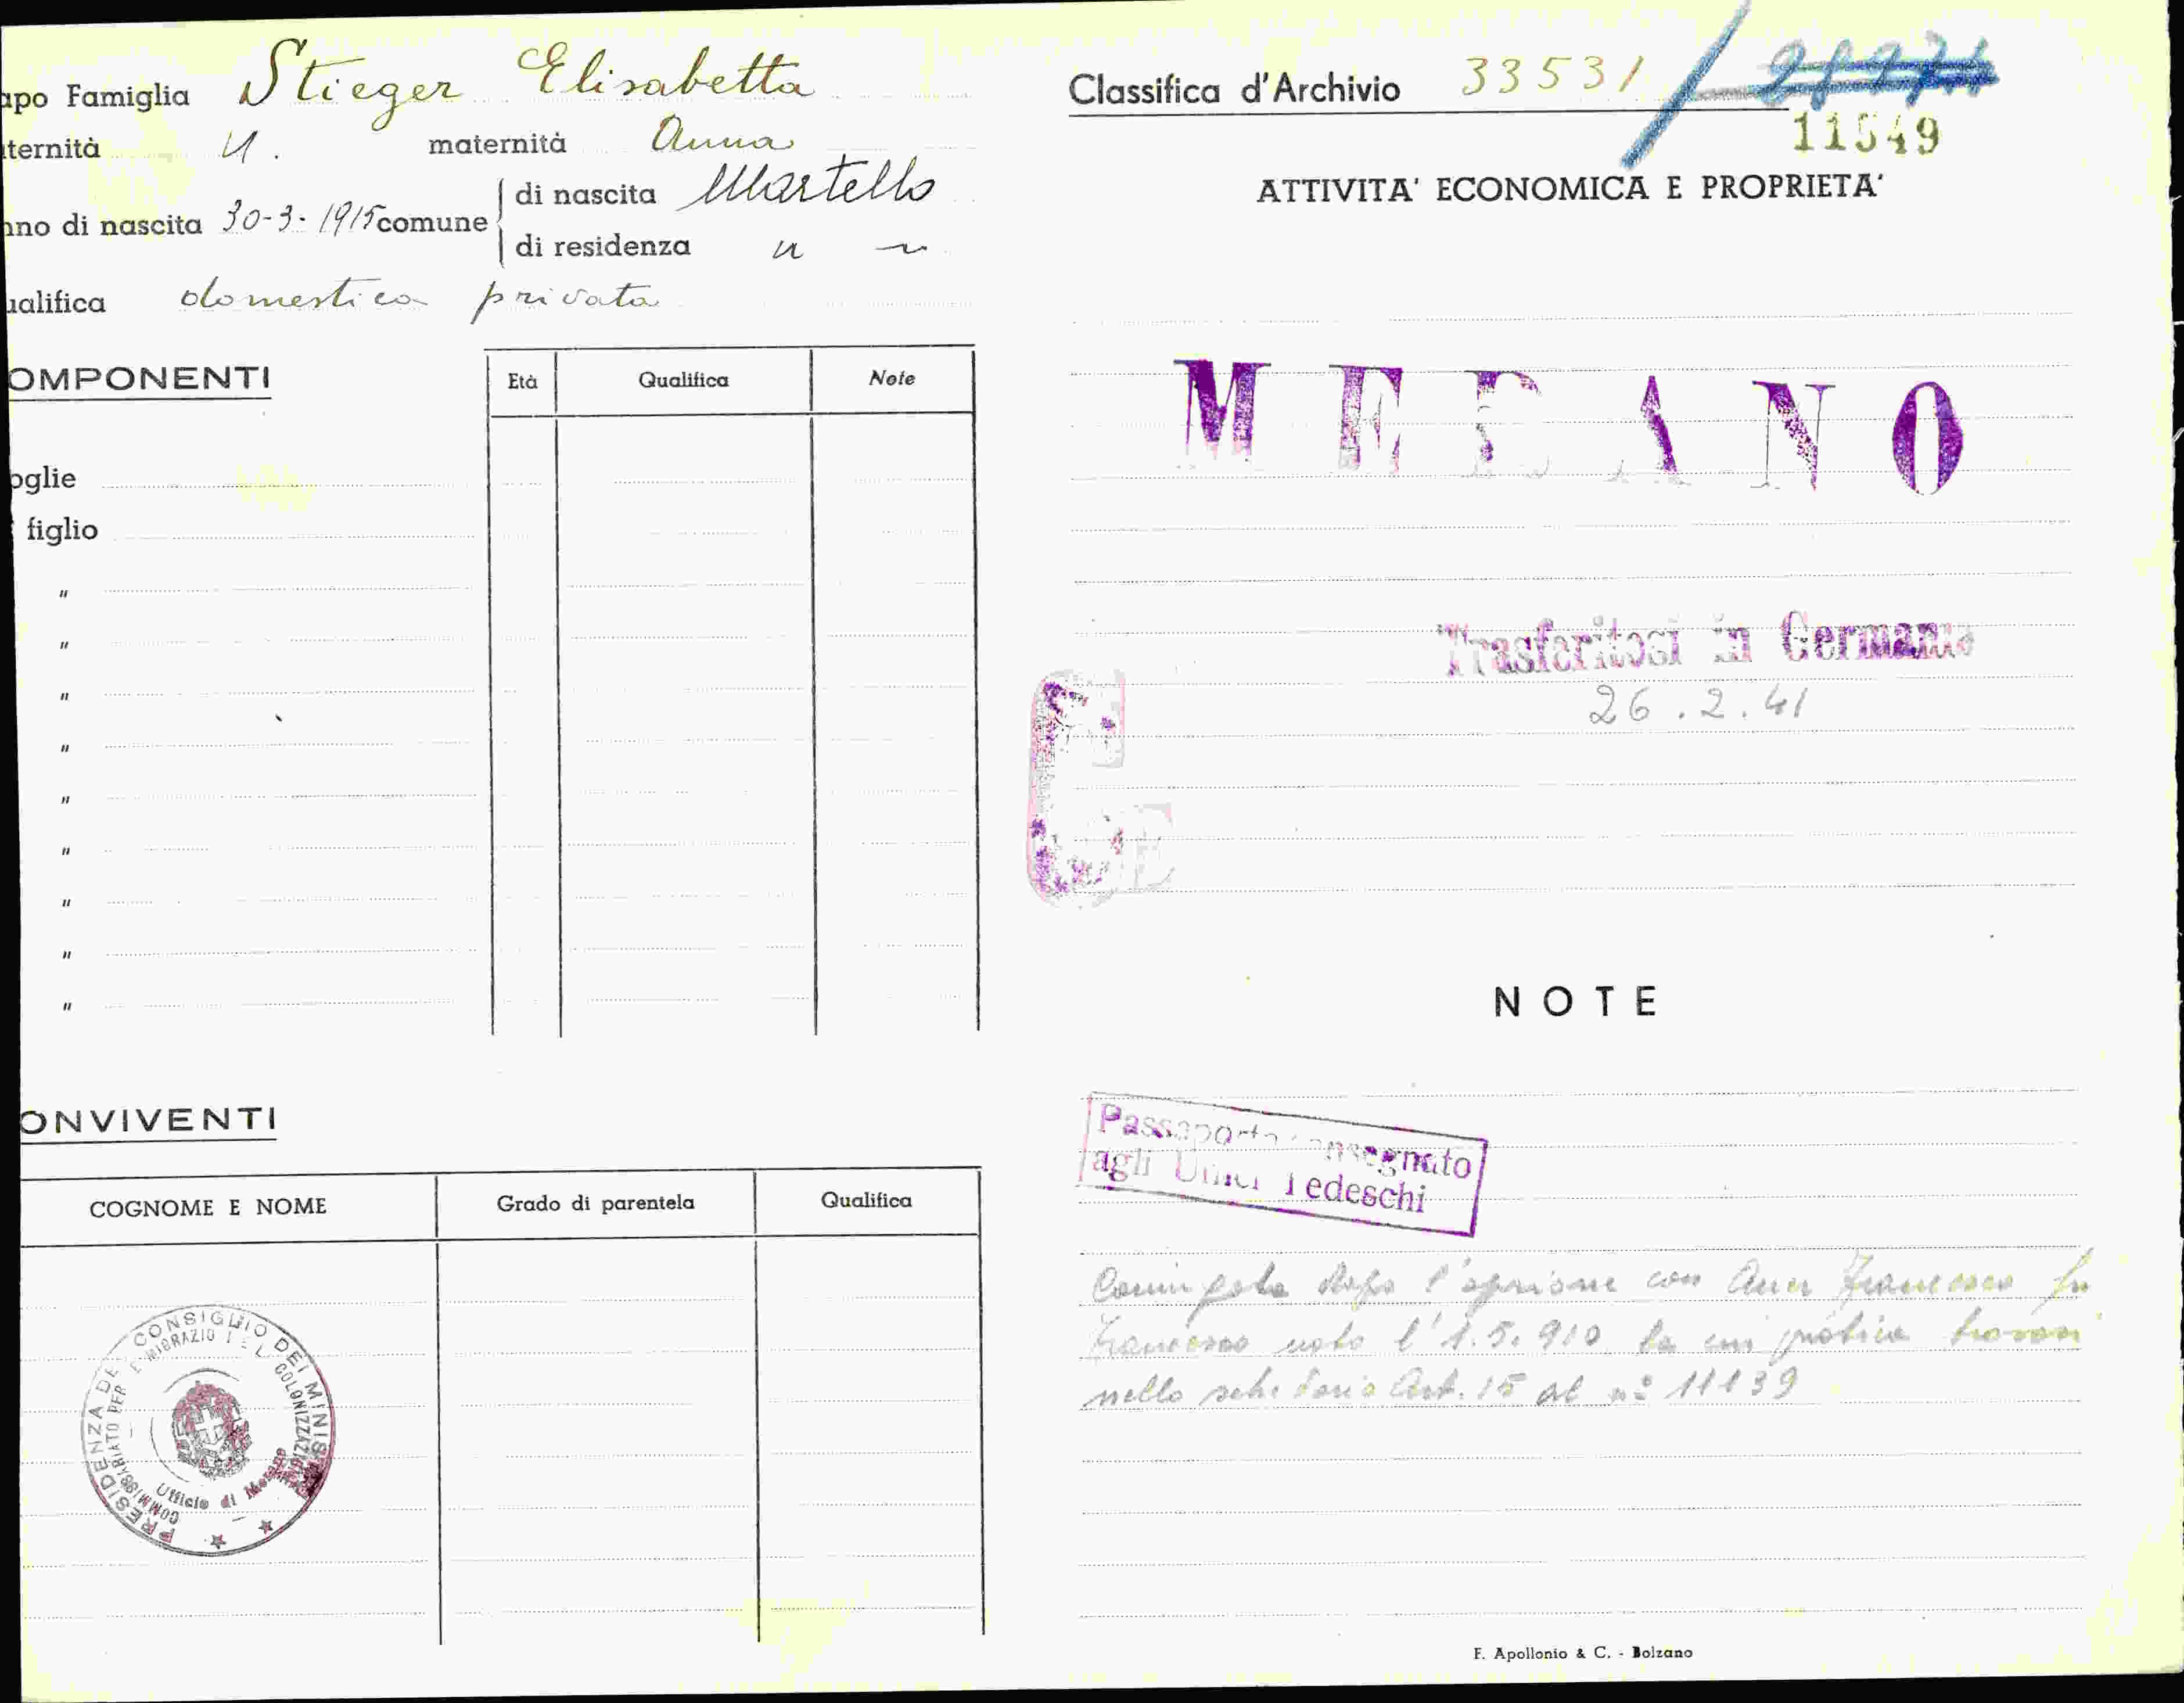 apo Famiglia Stieger Elisabetta
ternità N. maternità Anna
nno di nascita 30-3-1915 comune di nascita Martello
di residenza " "
ualifica domestica privata
OMPONENTI
Età Qualifica Note
oglie
figlio
"
"
"
"
"
"
"
"
"
ONVIVENTI
COGNOME E NOME Grado di parentela Qualifica
PRESIDENZA DEL CONSIGLIO DEI MINISTRI
COMMISSARIATO PER E MIGRAZIO COLONIZZAZI
Ufficio di Merano
Classifica d'Archivio 33531/
11549
ATTIVITA' ECONOMICA E PROPRIETA'
MERANO
Trasferitosi in Germania
26.2.41
NOTE
Passaporto consegnato
agli Uffici Tedeschi
Coniugata dopo l'opzione con Auer Francesco fu
Francesco nato l'1.5.910 la cui pratica trovasi
nello schedario Art. 15 al n° 11139
F. Apollonio & C. - Bolzano